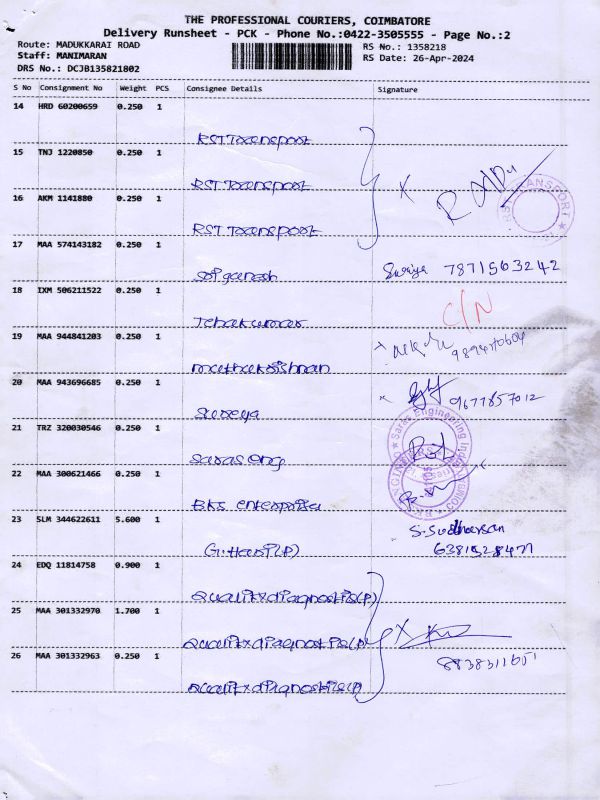 THE PROFESSIONAL COURIERS, COIMBATORE
Delivery Runsheet - PCK - Phone No.:0422-3505555 - Page No.:2
Route: MADUKKARAI ROAD
Staff: MANIMARAN
DRS No.: DCJB135821802
RS No.: 1358218
RS Date: 26-Apr-2024
S No Consignment No Weight PCS Consignee Details Signature
14 HRD 60200659 0.250 1
RST Transport
15 TNJ 1220850 0.250 1
RST Transport
16 AKM 1141880 0.250 1
RST Transport
TRANSPORT
17 MAA 574143182 0.250 1
Sri ganesh
Suriya 7871563242
18 IXM 506211522 0.250 1
Tebakumar
C/N
19 MAA 944841203 0.250 1
muthukrishnan
20 MAA 943696685 0.250 1
Sureya
9677857012
21 TRZ 320030546 0.250 1
Saras eng
Saras Engineering
22 MAA 300621466 0.250 1
BKS enterprises
23 SLM 344622611 5.600 1
G. Hari (P)
S. Sudharsan
24 EDQ 11814758 0.900 1
Quality diagnostis (P)
25 MAA 301332970 1.700 1
Quality diagnostis (P)
26 MAA 301332963 0.250 1
Quality diagnostis (P)